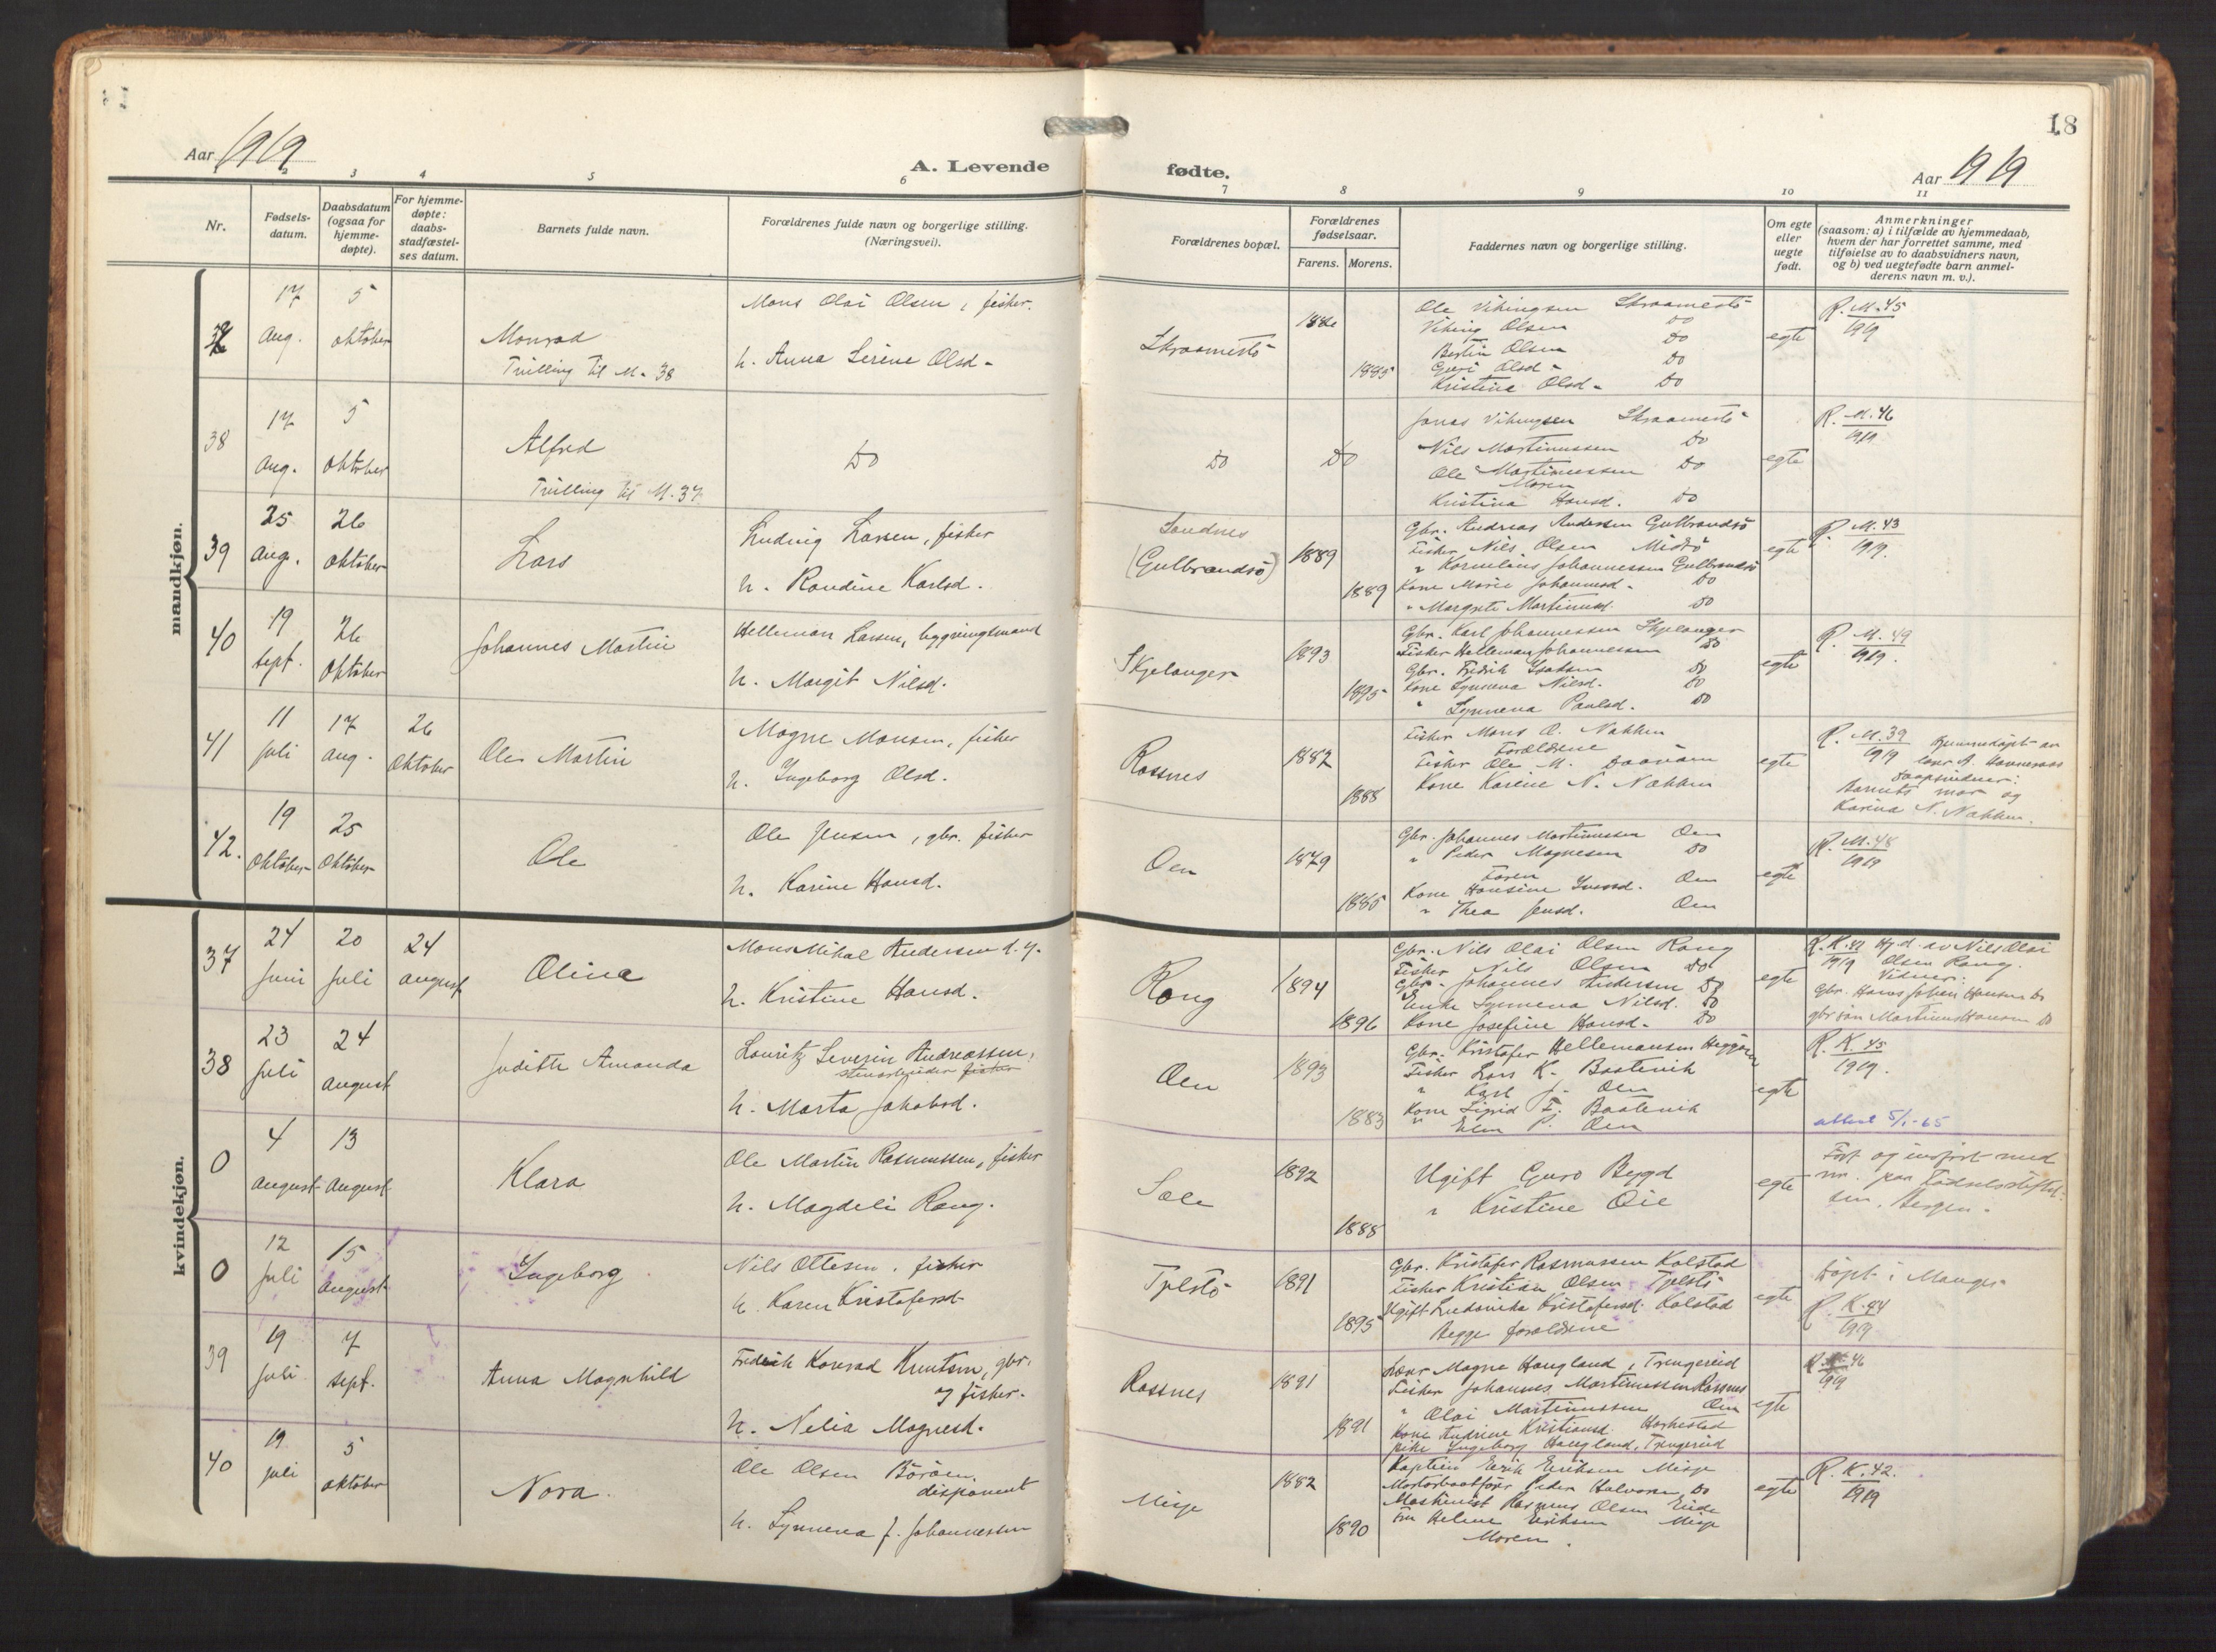 18
Aar 1919
A. Levende fødte.
Aar 1919
1 2 3 4 5 6 7 8 9 10 11
Nr.
Fødsels-
datum.
Daabsdatum
(ogsaa for
hjemme-
døpte).
For hjemme-
døpte:
daabs-
stadfæstel-
ses datum.
Barnets fulde navn.
Forældrenes fulde navn og borgerlige stilling.
(Næringsvei).
Forældrenes bopæl.
Forældrenes
fødselsaar.
Farens. Morens.
Faddernes navn og borgerlige stilling.
Om egte
eller
uegte
født.
Anmerkninger
(saasom: a) i tilfælde av hjemmedaab,
hvem der har forrettet samme, med
tilføielse av to daabsvidners navn,
og b) ved uegtefødte barn anmel-
derens navn m. v.).
mandkjøn.
37
17
Aug.
5
oktober
Monrad
Tvilling til M. 38
Mons Olai Olsen, fisker.
h. Anna Serine Olsd.
Skraamestö
1885
Ole Vikingsen Skraamestö
Viking Olsen Do
Bertin Olsen Do
Guri Olsd. Do
Kristine Olsd. Do
egte
R. M. 45
1919
38
17
Aug.
5
Oktober
Alfred
Tvilling til M. 37.
Do
Do
Do
Jonas Vikingsen Skraamestö
Nils Martinussen Do
Ole Martinussen Do
Moren
Kristina Hansd. Do
egte
R. M. 46
1919
39
25
Aug.
26
Oktober
Lars
Ludvig Larsen, fisker
h. Randine Karlsd.
Sandnes
(Gulbrandsö)
1889
1889
Gbr. Andreas Andersen Gulbrandsö
Fisker Nils Olsen Midtö
" Kornelius Johannessen Gulbrandsö
Kone Marie Johannesd. Do
" Margrete Martinusd. Do
egte
R. M. 43
1919.
40
19
Sept.
26
Oktober
Johannes Martin
Helleman Larsen, bygningsmand
h. Margit Nilsd.
Skjelanger
1893
1895
Gbr. Karl Johannessen Skjelanger
Fisker Helleman Johannessen Do
Gbr. Fredrik Isaksen Do
Kone Synneva Nilsd. Do
" Synneva Paulsd. Do
egte
R. M. 49
1919.
41
11
Juli
17
Aug.
26
Oktober
Ole Martin
Magne Monsen, fisker
h. Ingeborg Olsd.
Rossnes
1882
1888
Fisker Mons O. Nakken
Forældrene
Fisker Ole M.
Kone Karine N. Nakken
egte
R. M. 39
1919
Hjemmedøpt av
Daapsvidner:
Barnets mor og
Karina N. Nakken.
42.
19
Oktober
25
Oktober
Ole
Ole Jensen, gbr. fisker
h. Karine Hansd.
Oen
1879
1885
Gbr. Johannes Martinussen Oen
" Peder Magnesen Do
Faren
Kone Hansine Iversd. Oen
" Thea Jensd. Oen
egte
R. M. 48
1919
kvindekjøn.
37
24
Juni
20
Juli
24
August
Olina
Mons Mikal Andersen d. y.
h. Kristine Hansd.
Rong
1894
1896
Gbr. Nils Olai Olsen Rong
Fisker Nils Olsen Do
Gbr. Johannes Andersen Do
Enke Synneva Nilsd. Do
Kone Josefine Hansd. Do
egte
R. K. 41
1919
Hj. d. av Nils Olai
Olsen Rong.
Vidner:
Gbr. Hans Johan Hansen Do
gbr sön Martinus Hansen Do
38
23
Juli
24
August
Judith Amanda
Lauritz Severin Andreassen,
stenarbeider fisker
h. Marta Jakobsd.
Oen
1893
1883
Gbr. Kristofer Hellemansen
Fisker Lars K. Baatevik
" Karl J. Oen
Kone Sigrid F. Baatevik
" Elen P. Oen
egte
R. K. 45
1919.
attest 5/1-65
0
4
August
13
August
Klara
Ole Martin Rasmussen, fisker
h. Magdeli Rong.
Sæle
1892
1888
Ugift Guro Bygd
" Kristine Oie
egte
Født og indført med
nr. paa Fødselsstiftel-
sen, Bergen.
0
12
Juli
15
August
Ingeborg
Nils Ottesen, fisker
h. Karen Kristofersd.
Tjelstö
1891
1895
Gbr. Kristofer Rasmussen Kolstad
Fisker Kristian Olsen Tjelstö
Ugift Ludovika Kristofersd. Kolstad
Begge forældrene
egte
Døpt i Manger
R. K. 44
1919
39
19
Juli
7
Sept.
Anna Magnhild
Fredrik Konrad Knutsen, gbr.
og fisker.
h. Nelia Magnesd.
Rossnes
1891
1891
Lærer Magne Haugland, Trengereid
Fisker Johannes Martinussen Rossnes
" Olai Martinussen Oen
Kone Andrine Kristiansd.
Pike Ingeborg Haugland, Trengereid
egte
R. K. 46
1919
40
19
Juli
5
Oktober
Nora.
Ole Olsen Böröen,
disponent
h. Synneva f. Johannessen
Misje
1882
1890
Kaptein Eirik Eriksen Misje
Motorbaatfører Peder Halvorsen Do
Maskinist Rasmus Olsen Eide
Fru Helene Eriksen Misje
Moren.
egte
R. K. 42.
1919